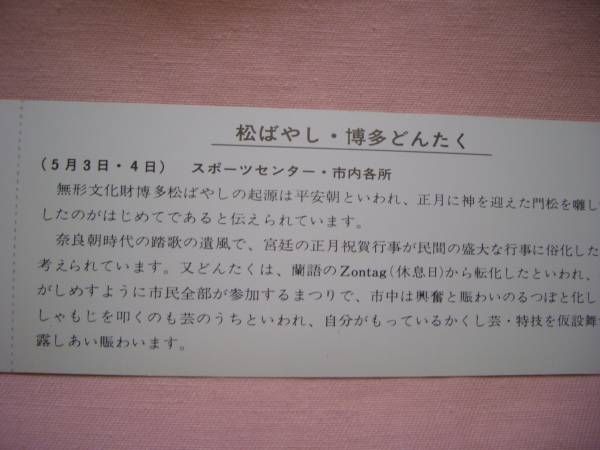 松ばやし・博多どんたく
(5月3日・4日) スポーツセンター・市内各所
無形文化財博多松ばやしの起源は平安朝といわれ、正月に神を迎えた門松を囃し
したのがはじめてであると伝えられています。
奈良朝時代の踏歌の遺風で、宮廷の正月祝賀行事が民間の盛大な行事に俗化した
考えられています。又どんたくは、蘭語のZontag(休息日)から転化したといわれ、
がしめすように市民全部が参加するまつりで、市中は興奮と賑わいのるつぼと化し
しゃもじを叩くのも芸のうちといわれ、自分がもっているかくし芸・特技を仮設舞
露しあい賑わいます。